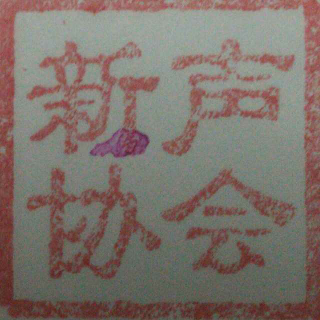 新声
协会